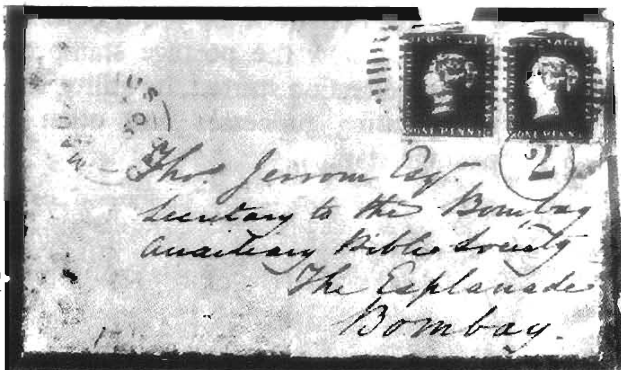 POSTAGE POSTAGE
ONE PENNY ONE PENNY
2
Thos. Jerrom Esq.
Secretary to the Bombay
Auxiliary Bible Society
The Esplanade
Bombay.